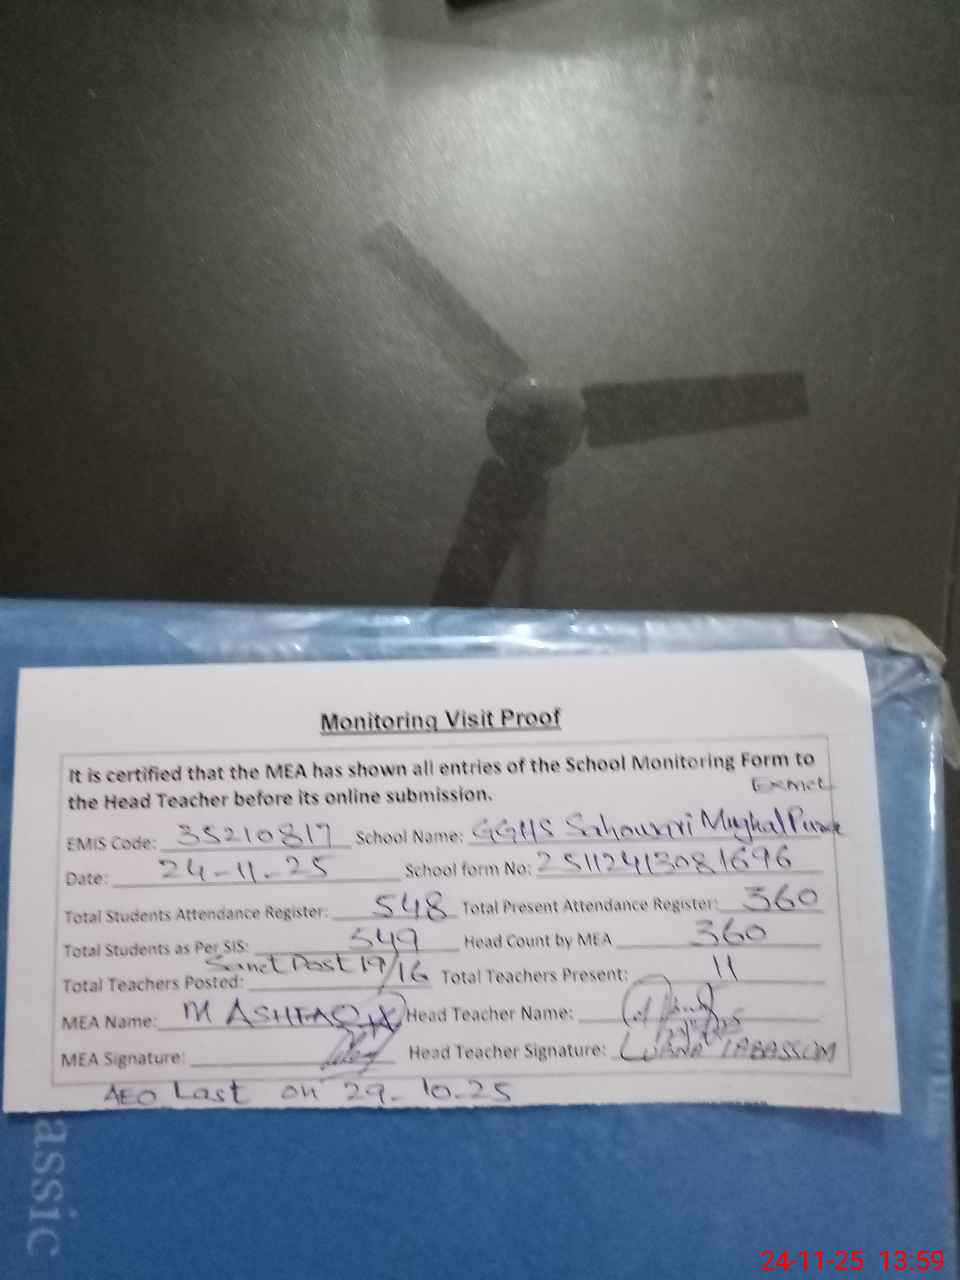 Monitoring Visit Proof
It is certified that the MEA has shown all entries of the School Monitoring Form to
the Head Teacher before its online submission.
EMIS Code: 35210817 School Name: GGHS Sahowari Mughal Pura
Date: 24-11-25 School form No: 2511241308 1696
Total Students Attendance Register: 548 Total Present Attendance Register: 360
Total Students as Per SIS: 549 Head Count by MEA 360
Total Teachers Posted: Sanct Post 19/16 Total Teachers Present: 11
MEA Name: M ASHFAQ Head Teacher Name:
MEA Signature: Head Teacher Signature: TABASSUM
AEO Last on 29-10-25
assic
24-11-25 13:59